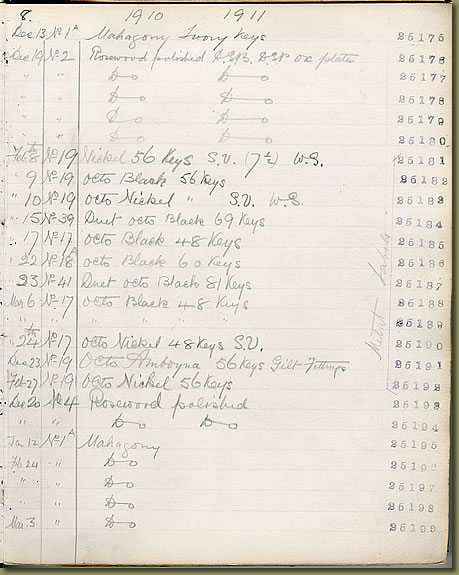 8. 1910 1911
Dec 13 No 1A Mahogony Ivory Keys 25175
Dec 19 No 2 Rosewood polished D.S.P. ox plates 25176
" " Do Do 25177
" " Do Do 25178
" " Do Do 25179
" " Do Do 25180
Feb 8th No 19 Nickel 56 Keys S.V. (7½) W.S. 25181
" 9 No 19 Octo Black 56 Keys 25182
" 10 No 19 Octo Nickel " S.V. W.S. 25183
" 15 No 39 Duet Octo Black 69 Keys 25184
" 17 No 17 Octo Black 48 Keys 25185
" 22 No 18A Octo Black 60 Keys 25186
" 23 No 41 Duet Octo Black 81 Keys 25187
Mar 6 No 17 Octo Black 48 Keys 25188
" " " " " " 25189
" 24th No 17 Octo Nickel 48 Keys S.V. 25190
Dec 23 No 19 Octo Amboyna 56 Keys Gilt Fittings 25191
Feb 27 No 19 Octo Nickel 56 Keys 25192
Dec 20 No 4 Rosewood polished 25193
" " Do Do 25194
Jan 12 No 1A Mahogony 25195
Feb 24 " Do 25196
" " Do 25197
" " Do 25198
Mar 3 " Do 25199
Metal Labels